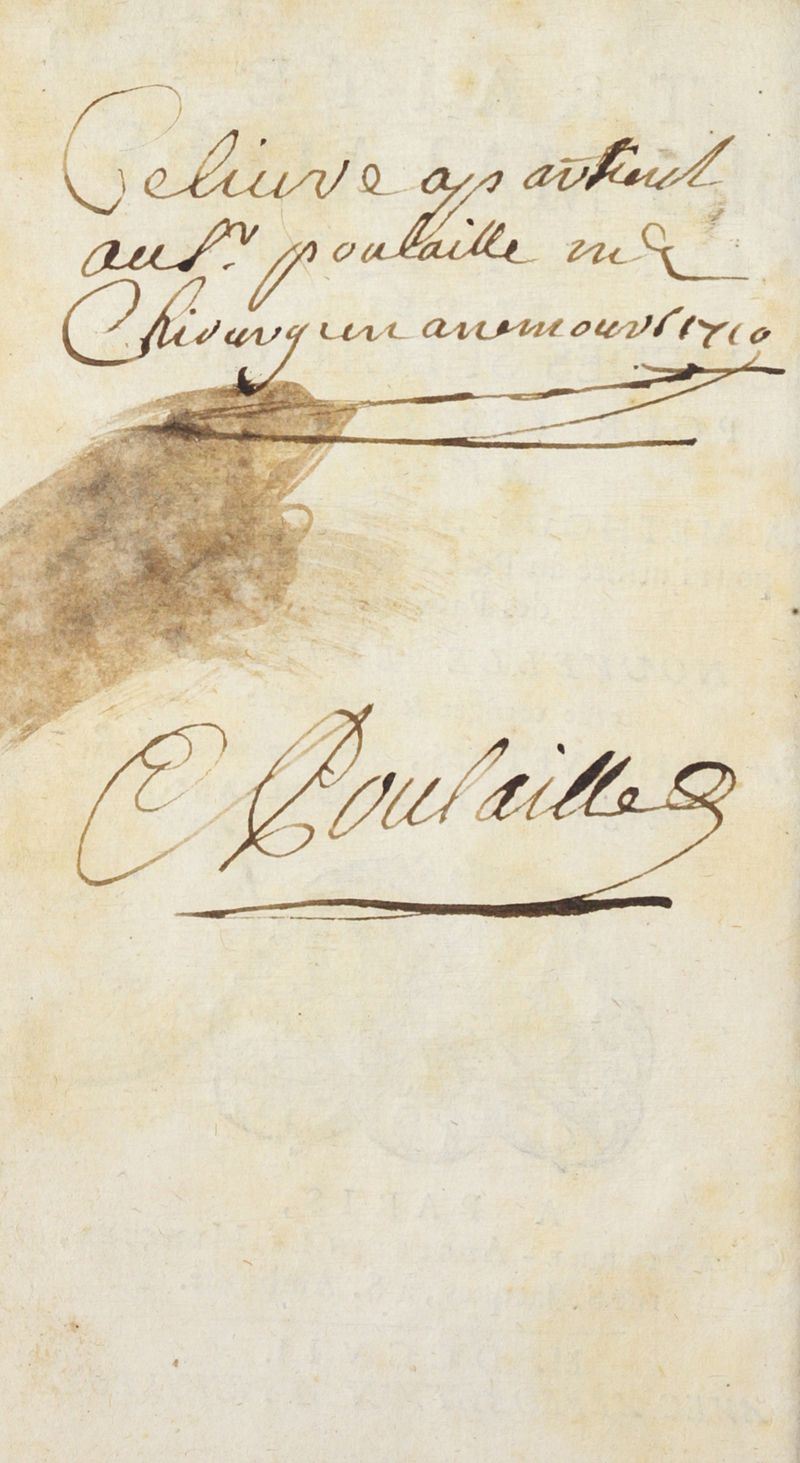 Ce livre apartient
au Sr. poulaille me
Chirurgien a nemours 1719
Poulaille